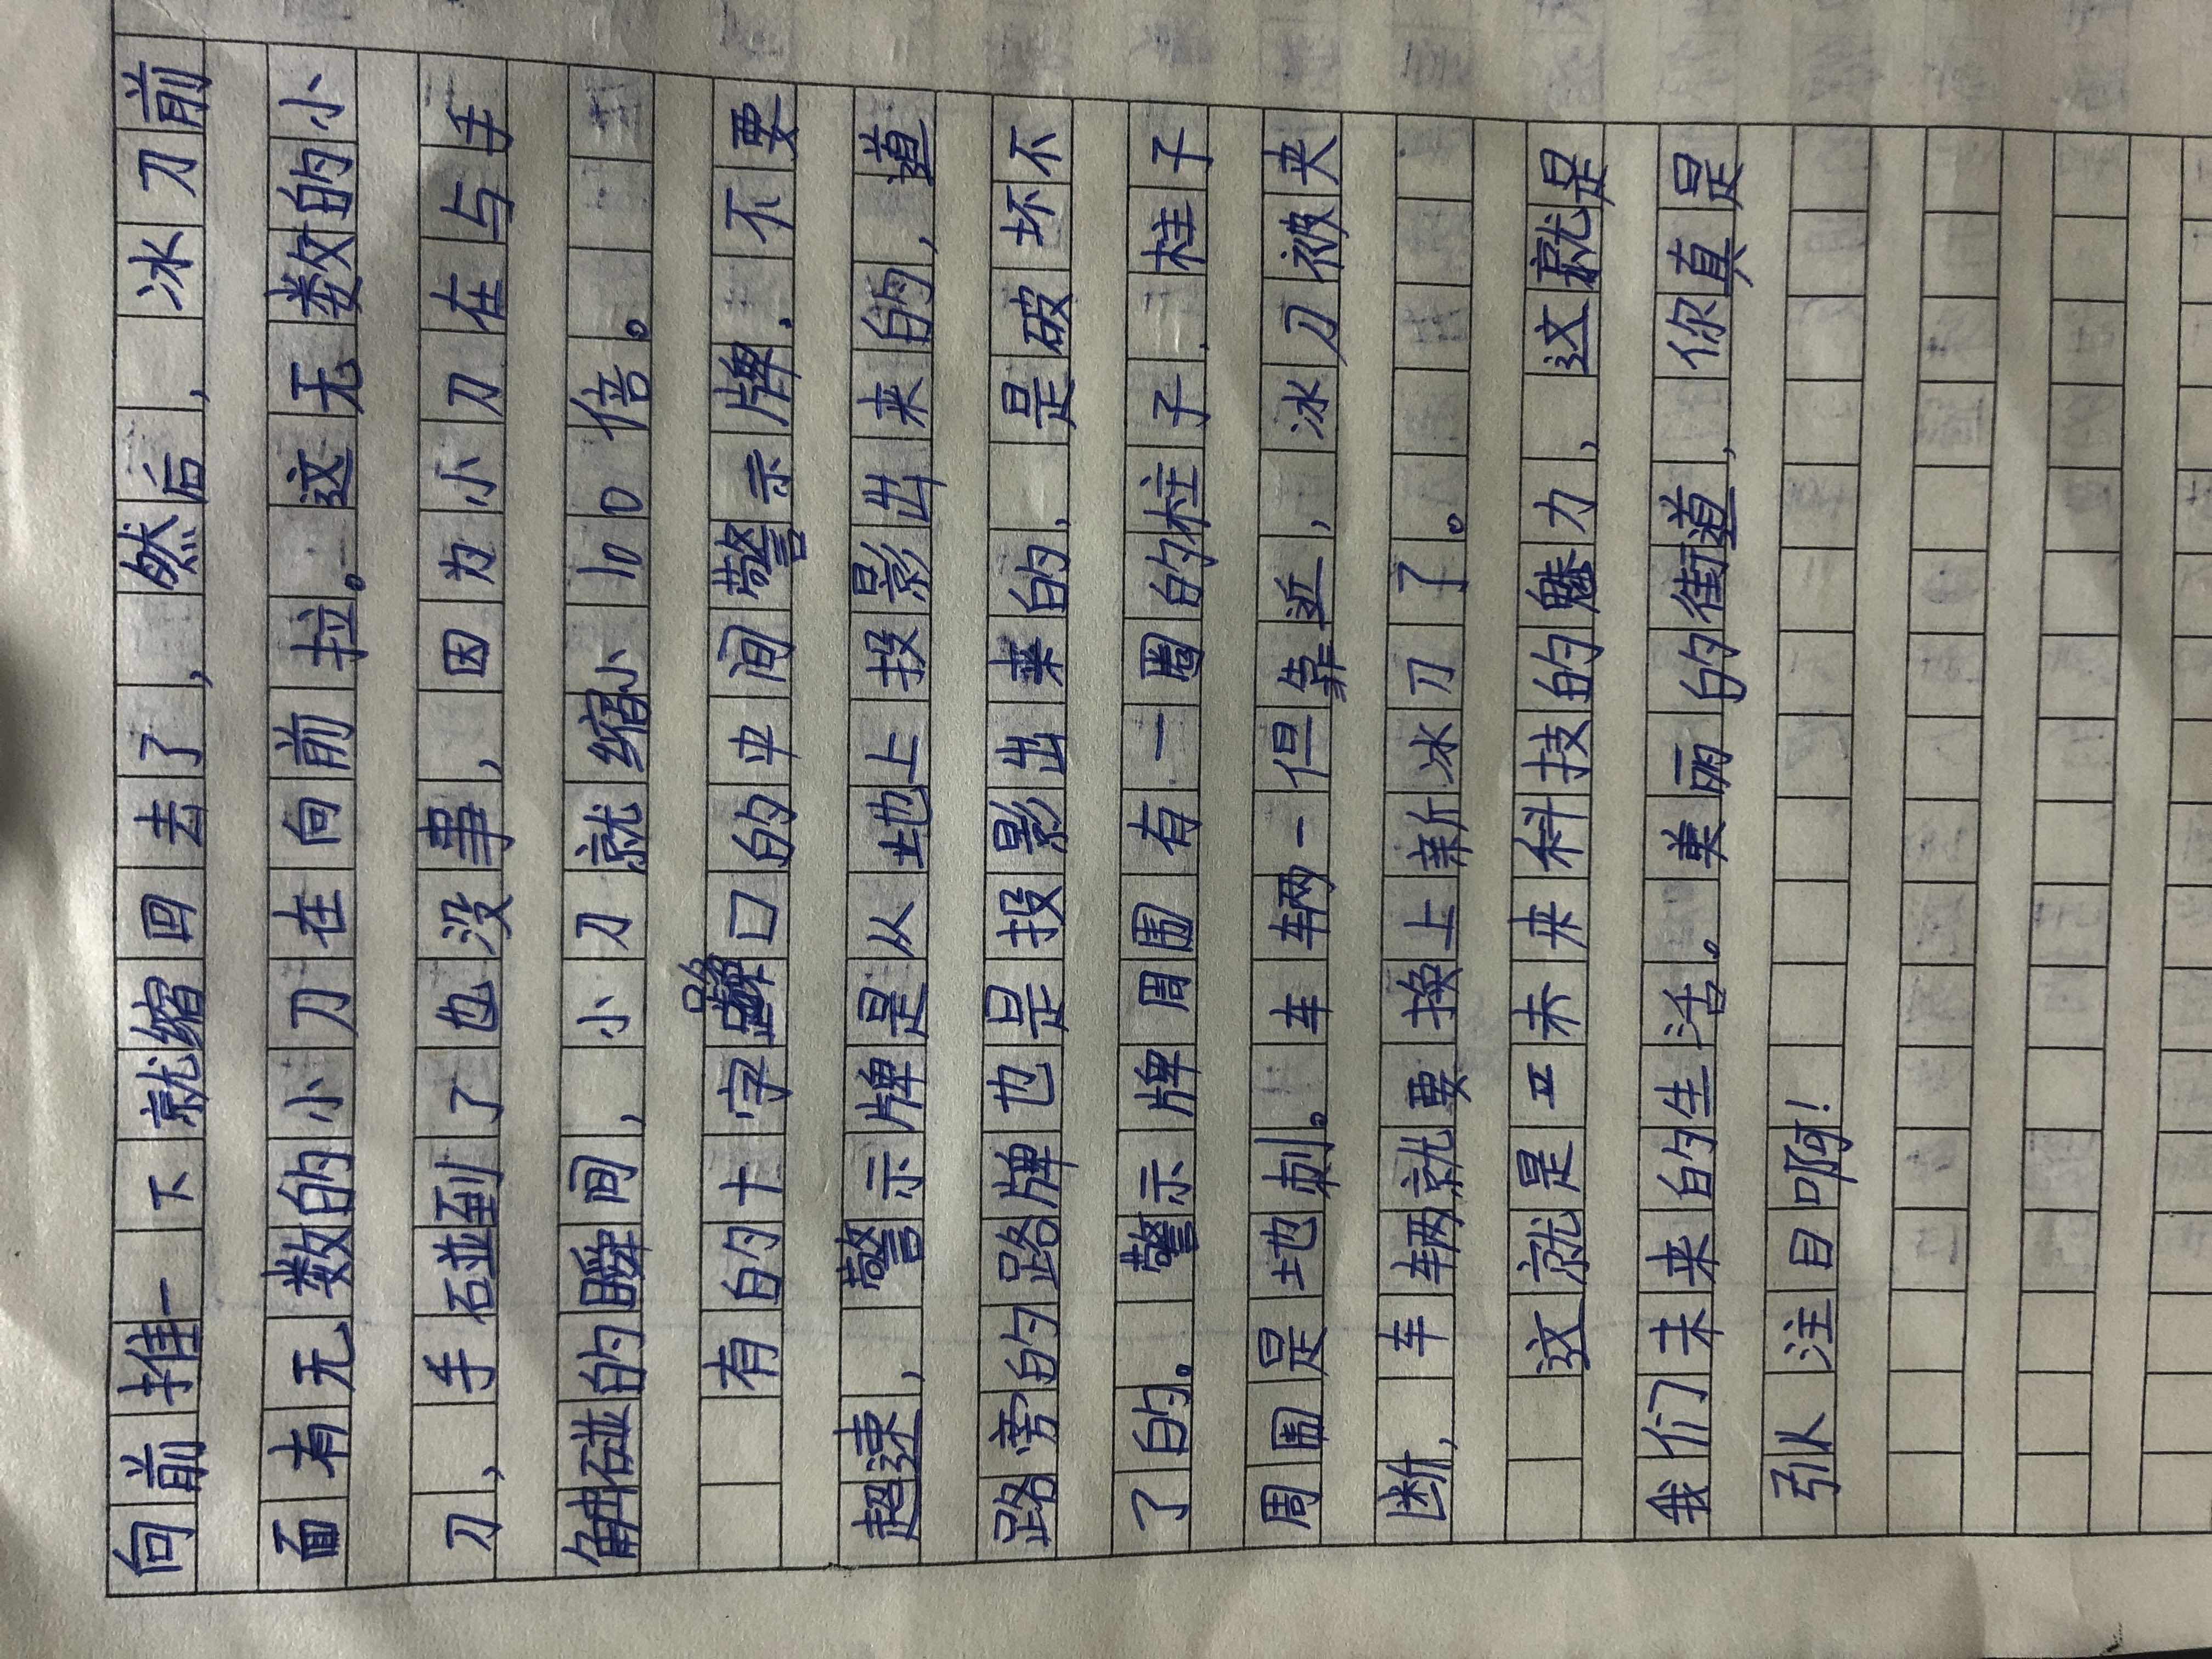 向前推一下就缩回去了，然后，冰刀前
面有无数的小刀在向前拉。这无数的小
刀，手碰到了也没事，因为小刀在与手
解碰的瞬间，小刀就缩小100倍。
有的十字路口的中间警示牌，不要
超速，警示牌是从地上投影出来的，道
路旁的路牌也是投影出来的，是破坏不
了的。警示牌周围有一圈的柱子，柱子
周围是地刺。车辆一但靠近，冰刀被夹
断，车辆就要换上新冰刀了。
这就是未来科技的魅力，这就是
我们未来的生活。美丽的街道，你真是
引人注目啊！